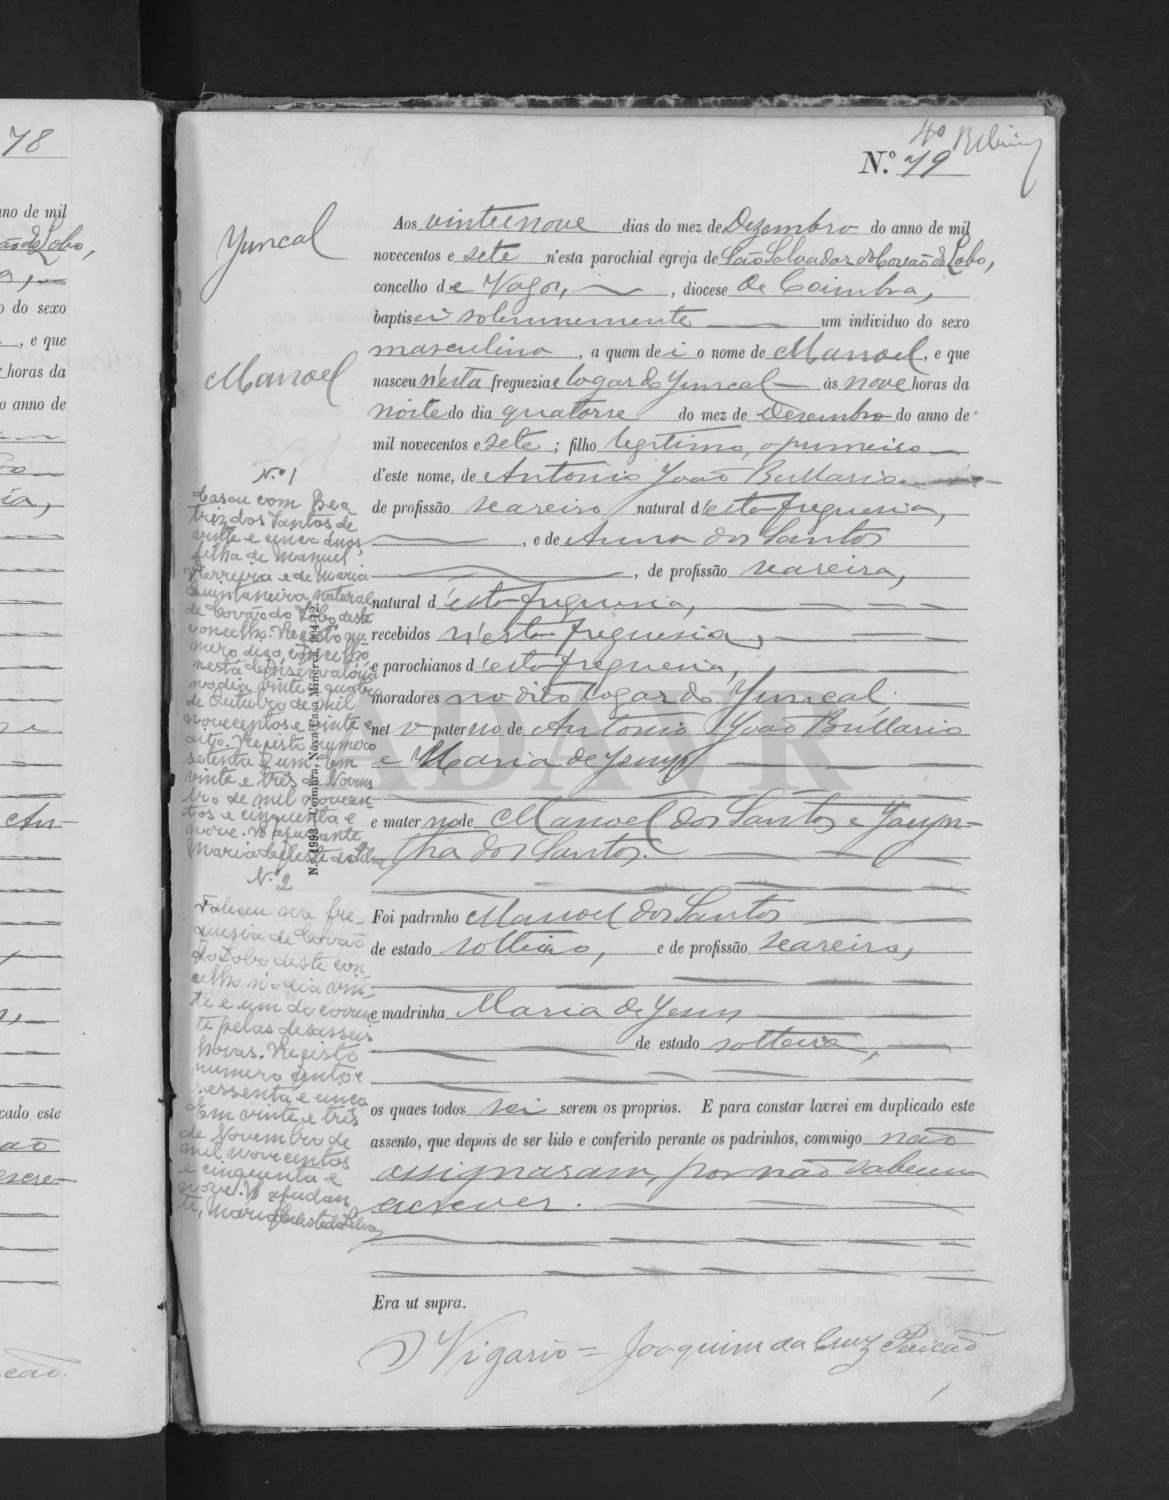 78
40
N.º 79
Juncal
Manoel
Aos vintenove dias do mez de Dezembro do anno de mil
novecentos e sete n'esta parochial egreja de São Salvador do Covão do Lobo,
concelho de Vagos, diocese de Coimbra,
baptisei solemnemente um individuo do sexo
masculino, a quem dei o nome de Manoel, e que
nasceu n'esta freguezia e logar do Juncal ás nove horas da
noite do dia quatorse do mez de Desembro do anno de
mil novecentos e sete; filho legitimo, o primeiro
d'este nome, de Antonio João Bullario
de profissão seareiro natural d'esta freguesia,
, e de Anna dos Santos
, de profissão seareira,
natural d'esta freguesia,
recebidos n'esta freguesia,
e parochianos d'esta freguesia,
moradores no dito logar do Juncal,
neto paterno de Antonio João Bullario
e Maria de Jesus
e materno de Manoel dos Santos e Jacyn-
tha dos Santos.
Foi padrinho Manoel dos Santos
de estado solteiro, e de profissão seareiro,
e madrinha Maria de Jesus
de estado solteira,
os quaes todos sei serem os proprios. E para constar lavrei em duplicado este
assento, que depois de ser lido e conferido perante os padrinhos, commigo não
assignaram, por não saberem
escrever.
Era ut supra.
O Vigario = Joaquim da Cruz
N.º 1
Casou com Bea
triz dos Santos de
vinte e cinco anos,
filha de Manuel
Ferreira e de Maria
natural
de Covão do Lobo, deste
concelho. Registo nu
mero
nesta Conservatoria
no dia vinte e quatro
de Outubro de mil
novecentos e vinte e
oito. Registo numero
setenta e um. Em
vinte e três de Novem
bro de mil novecen-
tos e cinquenta e
nove. O ajudante
Maria Celeste da Silva
N.º 2
Faleceu na fre
guesia de Covão
do Lobo deste con
celho no dia vin-
te e um do corren
te pelas desasseis
horas. Registo
numero cento e
sessenta e cinco
Em vinte e três
de Novembro de
mil novecentos
e cinquenta e
nove. O ajudan
te, Maria Celeste da Silva
N.º 1993 - Coimbra, Nova Casa Minerva,
ADAVR
no de mil
o do sexo
, e que
horas da
o anno de
An-
cado este